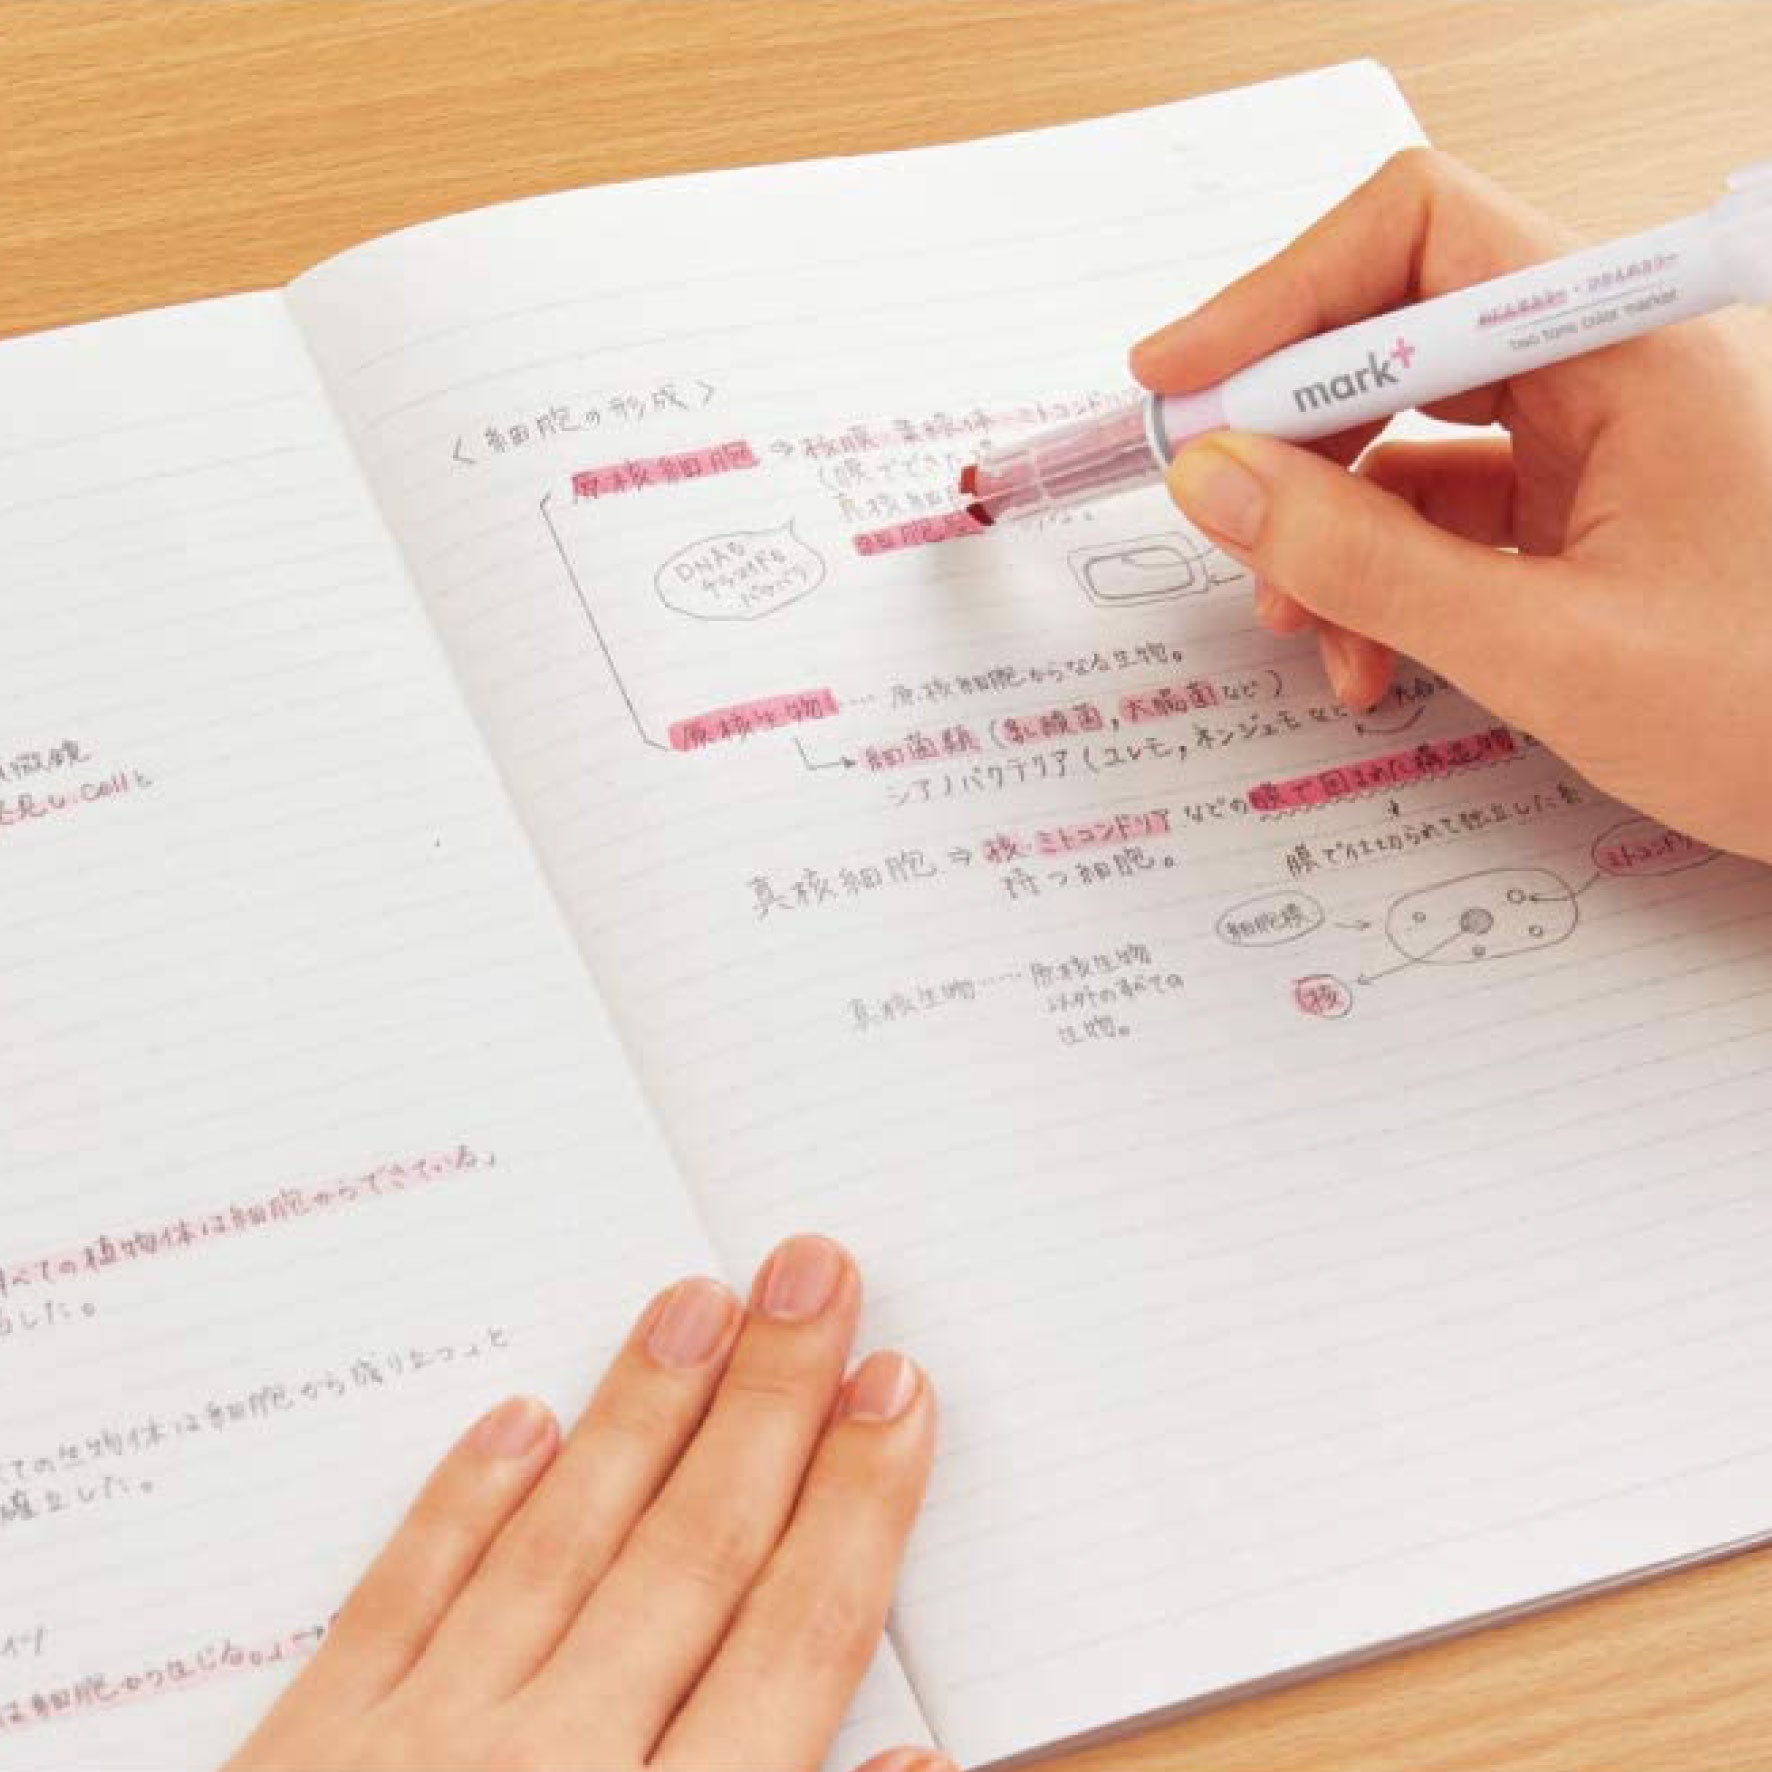 発見し、cellと
べての植物体は細胞からできている」
した。
ての生物体は細胞から成り立つ」と
確立した。
は細胞から生じる。」→
〈細胞の形成〉
原核細胞 ⇒ 核膜・葉緑体・ミトコンドリア
(膜でできた
真核細胞
細胞
DNAも
原核生物 … 原核細胞からなる生物。
細菌類(乳酸菌,大腸菌など)
シアノバクテリア(ユレモ,ネンジュモなど
真核細胞 ⇒ 核・ミトコンドリアなどの膜で囲まれた構造物
持つ細胞。
膜で仕切られて独立した
ミトコンドリ
細胞膜
核
真核生物……原核生物
以外のすべての
生物。
mark+
two tone color marker